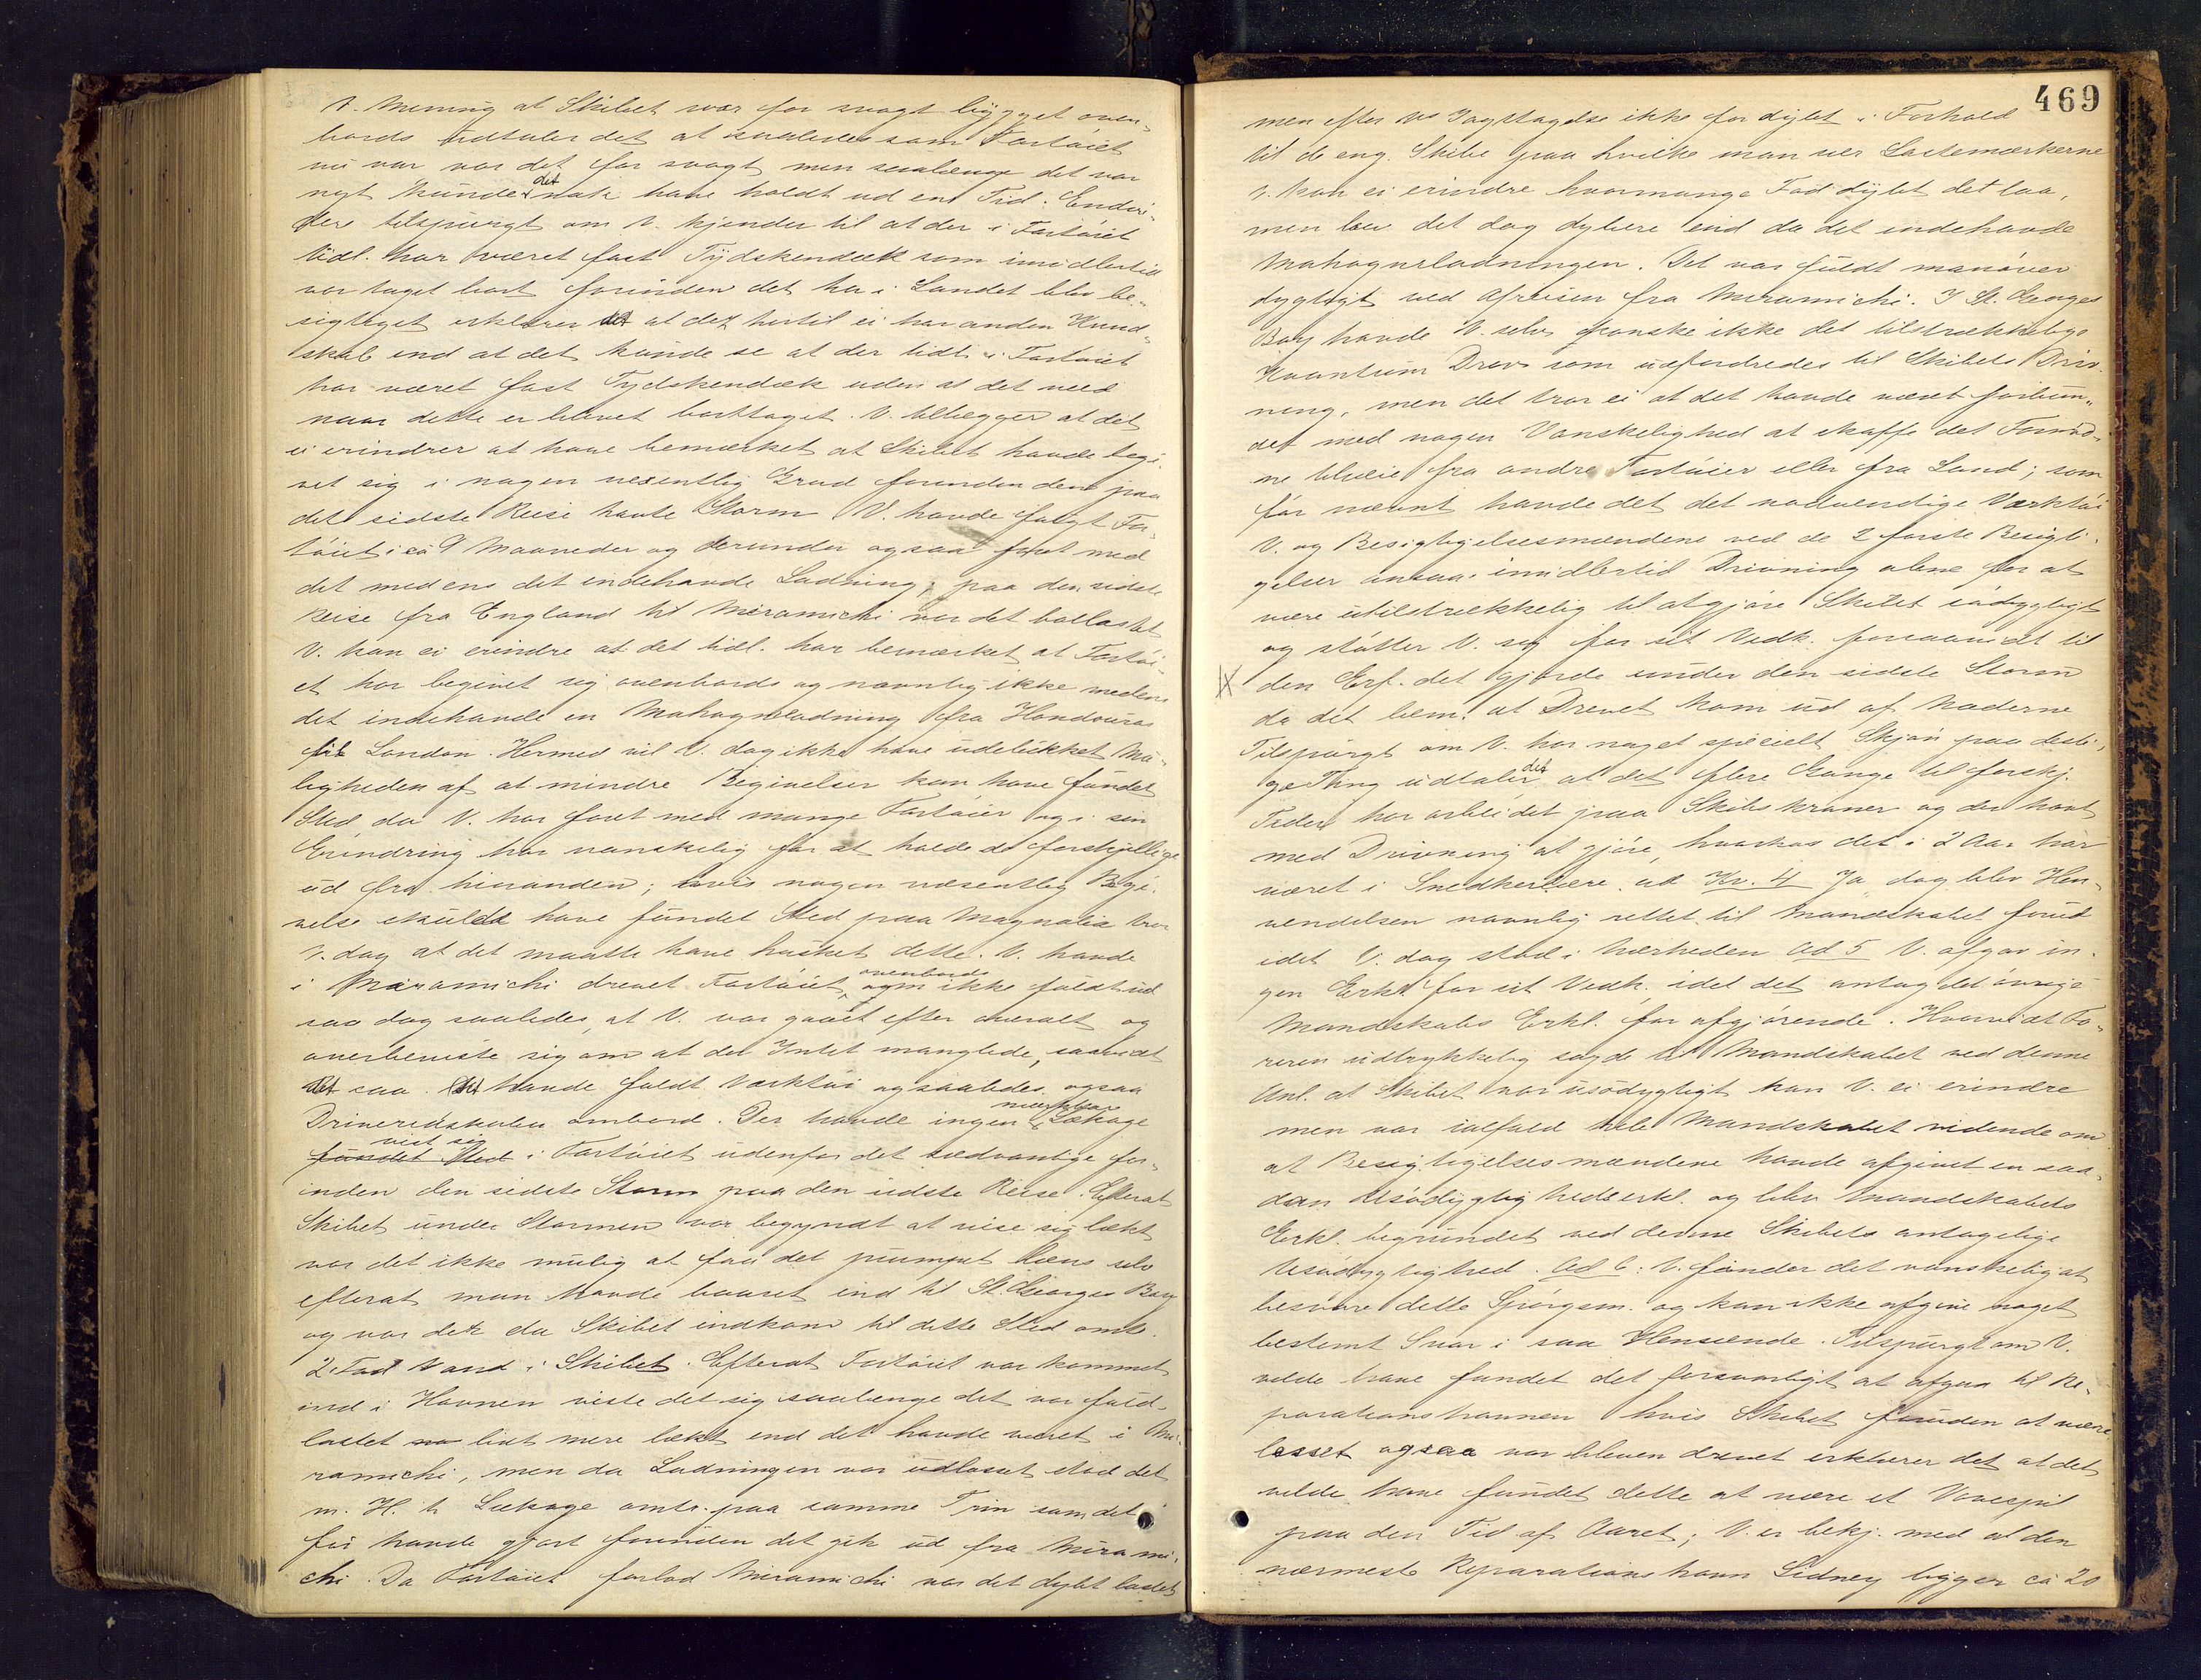 V. Mening at Skibet var for svagt bygget oven-
bords udtaler det at saaledes som Fartøiet
nu var var det for svagt men saalænge det var
nyt kunde det nok have holdt ud en Tid. Endvi-
dere tilspurgt om V. kjender til at der i Fartøiet
tidl. har været fast Tydskendæk som imidlertid
var taget bort forinden det her i Landet blev be-
sigtiget erklærer at det hertil ei har anden Kund-
skab end at det kunde se at der tidl. i Fartøiet
har været fast Tydskendæk uden at det veed
naar dette er blevet borttaget. V. tillægger at det
ei erindrer at have bemærket at Skibet havde begi-
vet sig i nogen væsentlig Grad forinden den paa
det sidste Reise havte Storm. V. havde fulgt Far-
tøiet i ca 9 Maaneder og derunder ogsaa faret med
det medens det indehavde Ladning; paa den sidste
Reise fra England til Miramichi var det ballastet
V. kan ei erindre at det tidl. har bemærket at Fartøi-
et har begivet sig ovenbords og navnlig ikke medens
det indehavde en Mahagniladning fra Hondouras
til London. Hermed vil V. dog ikke have udelukket Mu-
ligheden af at mindre Begivelser kan have fundet
Sted, da V. har faret med mange Fartøier og i sin
Erindring har vanskelig for at holde de forskjellige
ud fra hinanden; hvis nogen væsentlig Begi-
velse skulde have fundet Sted paa Magnolia tror
V. dog at det maatte have husket dette. V. havde
i Miramichi drevet Fartøiet ovenbords om ikke fuldt ud
saa dog saaledes, at V. var gaaet efter overalt og
overbeviste sig om at der Intet manglede, saavidt
det saa. Det havde fuldt Værktøi og saaledes ogsaa
Driveredskaber ombord. Der havde ingen mærkbar Lækage
fundet Sted vist sig i Fartøiet udenfor det sædvanlige for-
inden den sidste Storm paa den sidste Reise. Efterat
Skibet under Stormen var begyndt at vise sig lækt
var det ikke mulig at faa det pumpet læns selv
efterat man havde baaret ind til St. Georges Bay
og var der da Skibet indkom til dette Sted omtr.
2 Fod Vand i Skibet. Efterat Fartøiet var kommet
ind i Havnen viste det sig saalænge det var fuld-
lastet lidt mere lækt end det havde været i Mi-
ramichi, men da Ladningen var udlosset stod det
m. H. t. Lækage omtr. paa samme Trin som det
før havde gjort forinden det gik ud fra Mirami-
chi. Da Fartøiet forlod Miramichi var det dybt lastet
469
men efter Vs Iagttagelse ikke for dybt i Forhold
til de eng. Skibe paa hvilke man ser Lastemærkerne
V. kan ei erindre hvormange Fod dybt det laa,
men blev det dog dybere end da det indehavde
Mahagniladningen. Det var fuldt manøver
dygtigt ved Afreisen fra Miramichi. I St. Georges
Bay havde V. selv ganske ikke det tilstrækkelige
Kvantum Drev som udfordredes til Skibets Driv-
ning, men det tror ei at det havde været forbun-
det med nogen Vanskelighed at skaffe det Fornød-
ne tilveie fra andre Fartøier eller fra Land; som
før nævnt havde det det nødvendige Værktøi
V. og Besigtigelsesmændene ved de 2 første Besigti-
gelser ansaa imidlertid Drivning alene for at
være utilstrækkelig til at gjøre Skibet sødygtigt
og støtter V. sig for sit Vedk. forsaavidt til
den Erf. det gjorde under den sidste Storm
da det bem. at Drevet kom ud af Naderne
Tilspurgt om V. har noget specielt Skjøn paa desli-
ge Ting udtaler det at det flere Gange til forskj.
Tider har arbeidet paa Skibskraner og der havt
med Drivning at gjøre, hvorhos det i 2 Aar har
været i Snedkerlære. ad Kv. 4 Ja dog blev Hen-
vendelsen navnlig rettet til Mandskabet forud
idet V. dog stod i Nærheden. ad 5 V. afgav in-
gen Erkl. for sit Vedk. idet det antog det øvrige
Mandskabs Erkl. for afgjørende. Hvorvidt Fø-
reren udtrykkelig sagde til Mandskabet ved denne
Anl. at Skibet var usødygtigt kan V. ei erindre
men var ialfald hele Mandskabet vidende om
at Besigtigelsesmændene havde afgivet en saa-
dan Usødygtighedserkl. og blev Mandskabets
Erkl. begrundet ved denne Skibets antagelige
Usødygtighed. ad 6: V. finder det vanskelig at
besvare dette Spørgsm. og kan ikke afgive noget
bestemt Svar i saa Henseende. Tilspurgt om V.
vilde have fundet det forsvarligt at afgaa til Re-
parationshavnen hvis Skibet foruden at være
losset ogsaa var bleven drevet erklærer det at det
vilde have fundet dette at være et Vovespil
paa den Tid af Aaret; V. er bekj. med at den
nærmeste Reparationshavn Sidney ligger ca 20